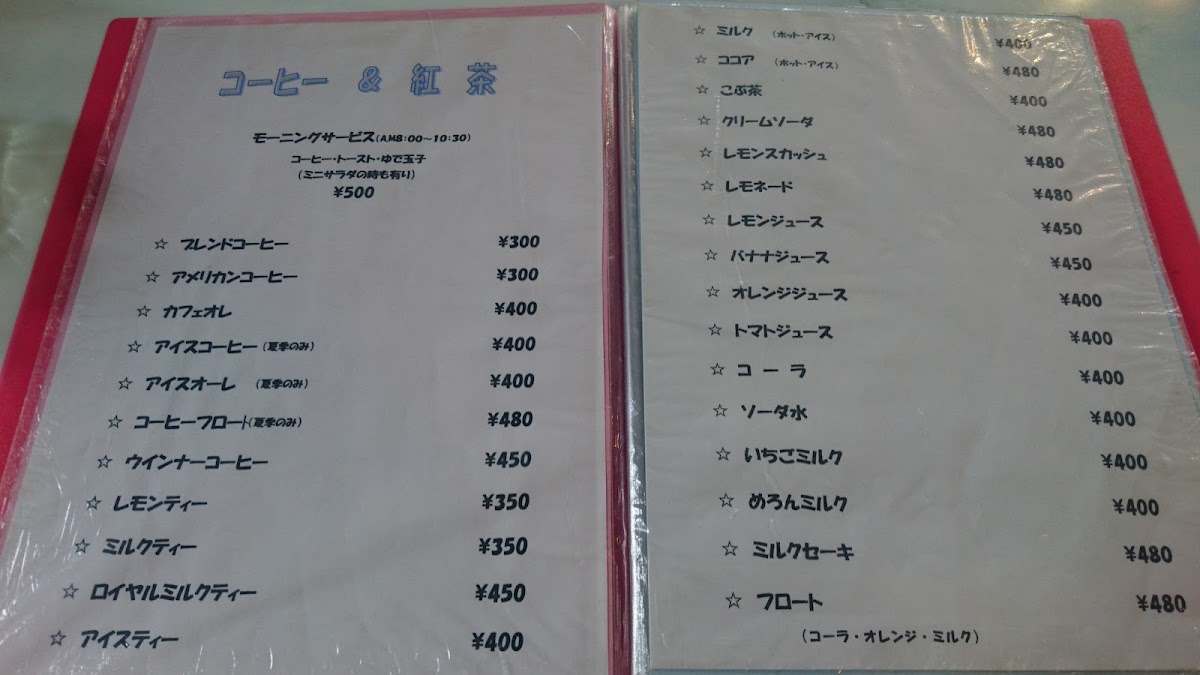 コーヒー & 紅 茶
モーニングサービス(AM8:00〜10:30)
コーヒー・トースト・ゆで玉子
(ミニサラダの時も有り)
¥500
☆ ブレンドコーヒー ¥300
☆ アメリカンコーヒー ¥300
☆ カフェオレ ¥400
☆ アイスコーヒー (夏季のみ) ¥400
☆ アイスオーレ (夏季のみ) ¥400
☆ コーヒーフロート(夏季のみ) ¥480
☆ ウインナーコーヒー ¥450
☆ レモンティー ¥350
☆ ミルクティー ¥350
☆ ロイヤルミルクティー ¥450
☆ アイスティー ¥400
☆ ミルク (ホット・アイス) ¥400
☆ ココア (ホット・アイス) ¥480
☆ こぶ茶 ¥400
☆ クリームソーダ ¥480
☆ レモンスカッシュ ¥480
☆ レモネード ¥480
☆ レモンジュース ¥450
☆ バナナジュース ¥450
☆ オレンジジュース ¥400
☆ トマトジュース ¥400
☆ コ ー ラ ¥400
☆ ソーダ水 ¥400
☆ いちごミルク ¥400
☆ めろんミルク ¥400
☆ ミルクセーキ ¥480
☆ フロート ¥480
(コーラ・オレンジ・ミルク)